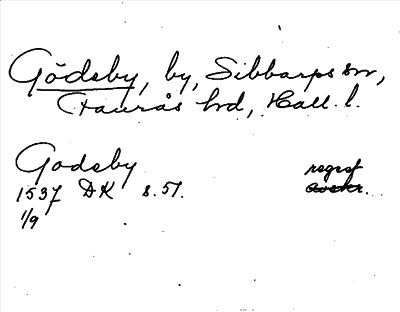 Gödeby, by, Sibbarps sn,
Faurås hd, Hall. l.
Godeby regest
1537 DK s. 57. avskr.
1/9